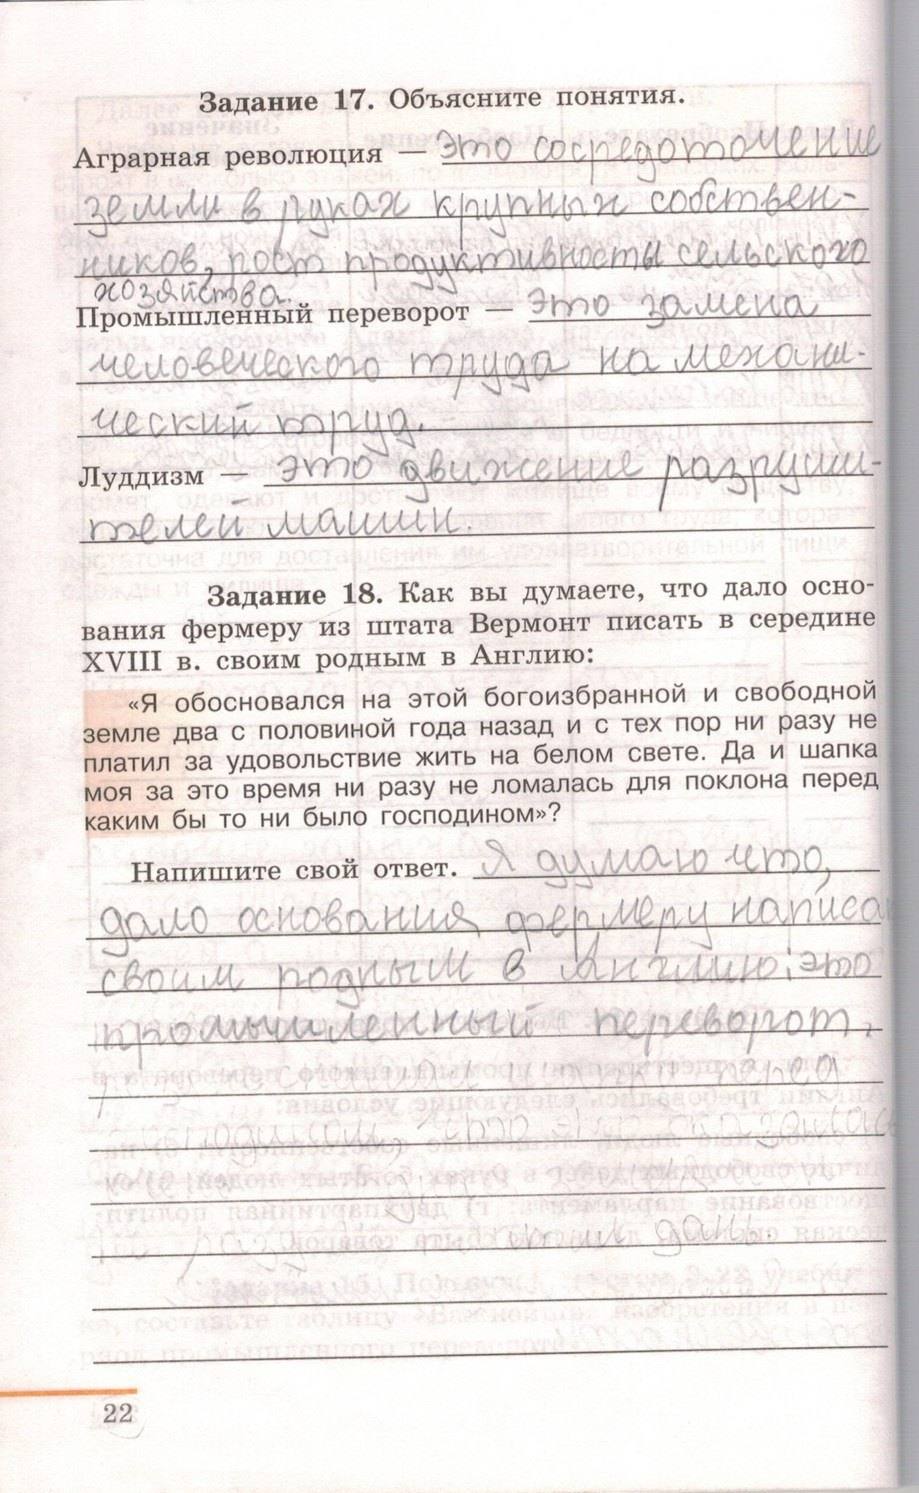 Задание 17. Объясните понятия.
Аграрная революция — это сосредоточение
земли в руках крупных собствен-
ников, рост продуктивности сельского
хозяйства.
Промышленный переворот — это замена
человеческого труда на механи-
ческий труд.
Луддизм — это движение разруши-
телей машин.
Задание 18. Как вы думаете, что дало осно-
вания фермеру из штата Вермонт писать в середине
XVIII в. своим родным в Англию:
«Я обосновался на этой богоизбранной и свободной
земле два с половиной года назад и с тех пор ни разу не
платил за удовольствие жить на белом свете. Да и шапка
моя за это время ни разу не ломалась для поклона перед
каким бы то ни было господином»?
Напишите свой ответ. Я думаю что,
дало основания, фермеру написа
своим родным в Англию: это
промышленный переворот,
перед
дань.
22